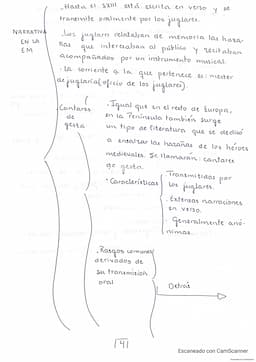 . Hasta el SXIII está escrita en verso y se
transmite oralmente por los juglares.
NARRATIVA
EN LA
EM
. Los juglares relataban de memoria las haza-
ñas que interesaban al público y recitaban
acompañados por un instrumento musical.
. La corriente a la que pertenece es: mester
de juglaría (oficio de los juglares).
Cantares
de
gesta
. Igual que en el resto de Europa,
en la Península también surge
un tipo de literatura que se dedicó
a ensalzar las hazañas de los héroes
medievales. Se llamarán: cantares
de gesta.
. Características
Transmitidos por
los juglares.
. Extensas narraciones
en verso.
. Generalmente anó-
nimas.
. Rasgos comunes
derivados de
su transmisión
oral
Detrás
141
Escaneado con CamScanner